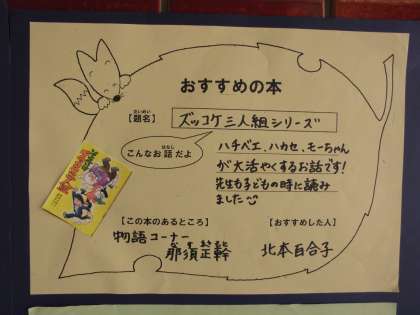 おすすめの本
だいめい
【題名】 ズッコケ三人組シリーズ
はなし
こんなお話だよ
ハチベエ、ハカセ、モーちゃん
が大活やくするお話です!
先生も子どもの時に読み
ました☺
【この本のあるところ】
物語コーナー
な す まさ もと
那須正幹
【おすすめした人】
北本百合子